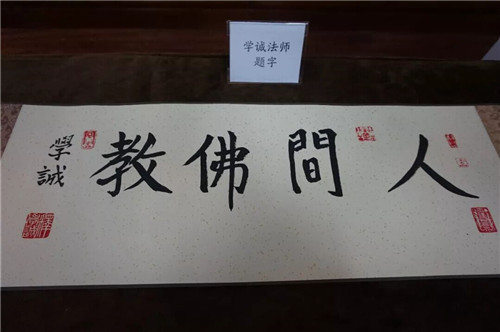 学诚法师
题字
人間佛教
學誠